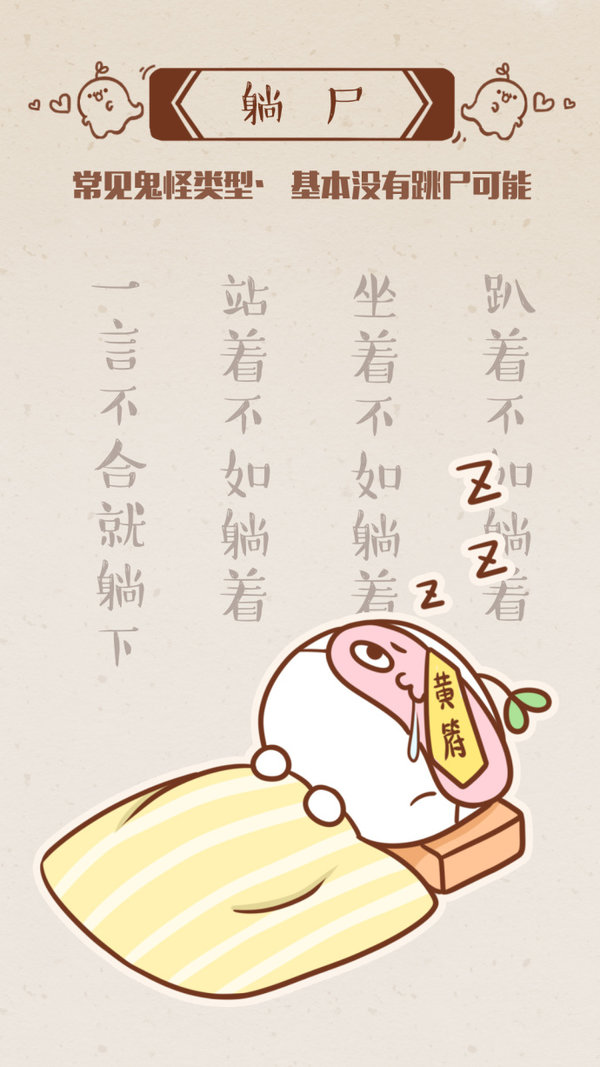 躺尸
常见鬼怪类型· 基本没有跳尸可能
趴着不如躺着
坐着不如躺着
站着不如躺着
一言不合就躺下
Z
Z
Z
黄符